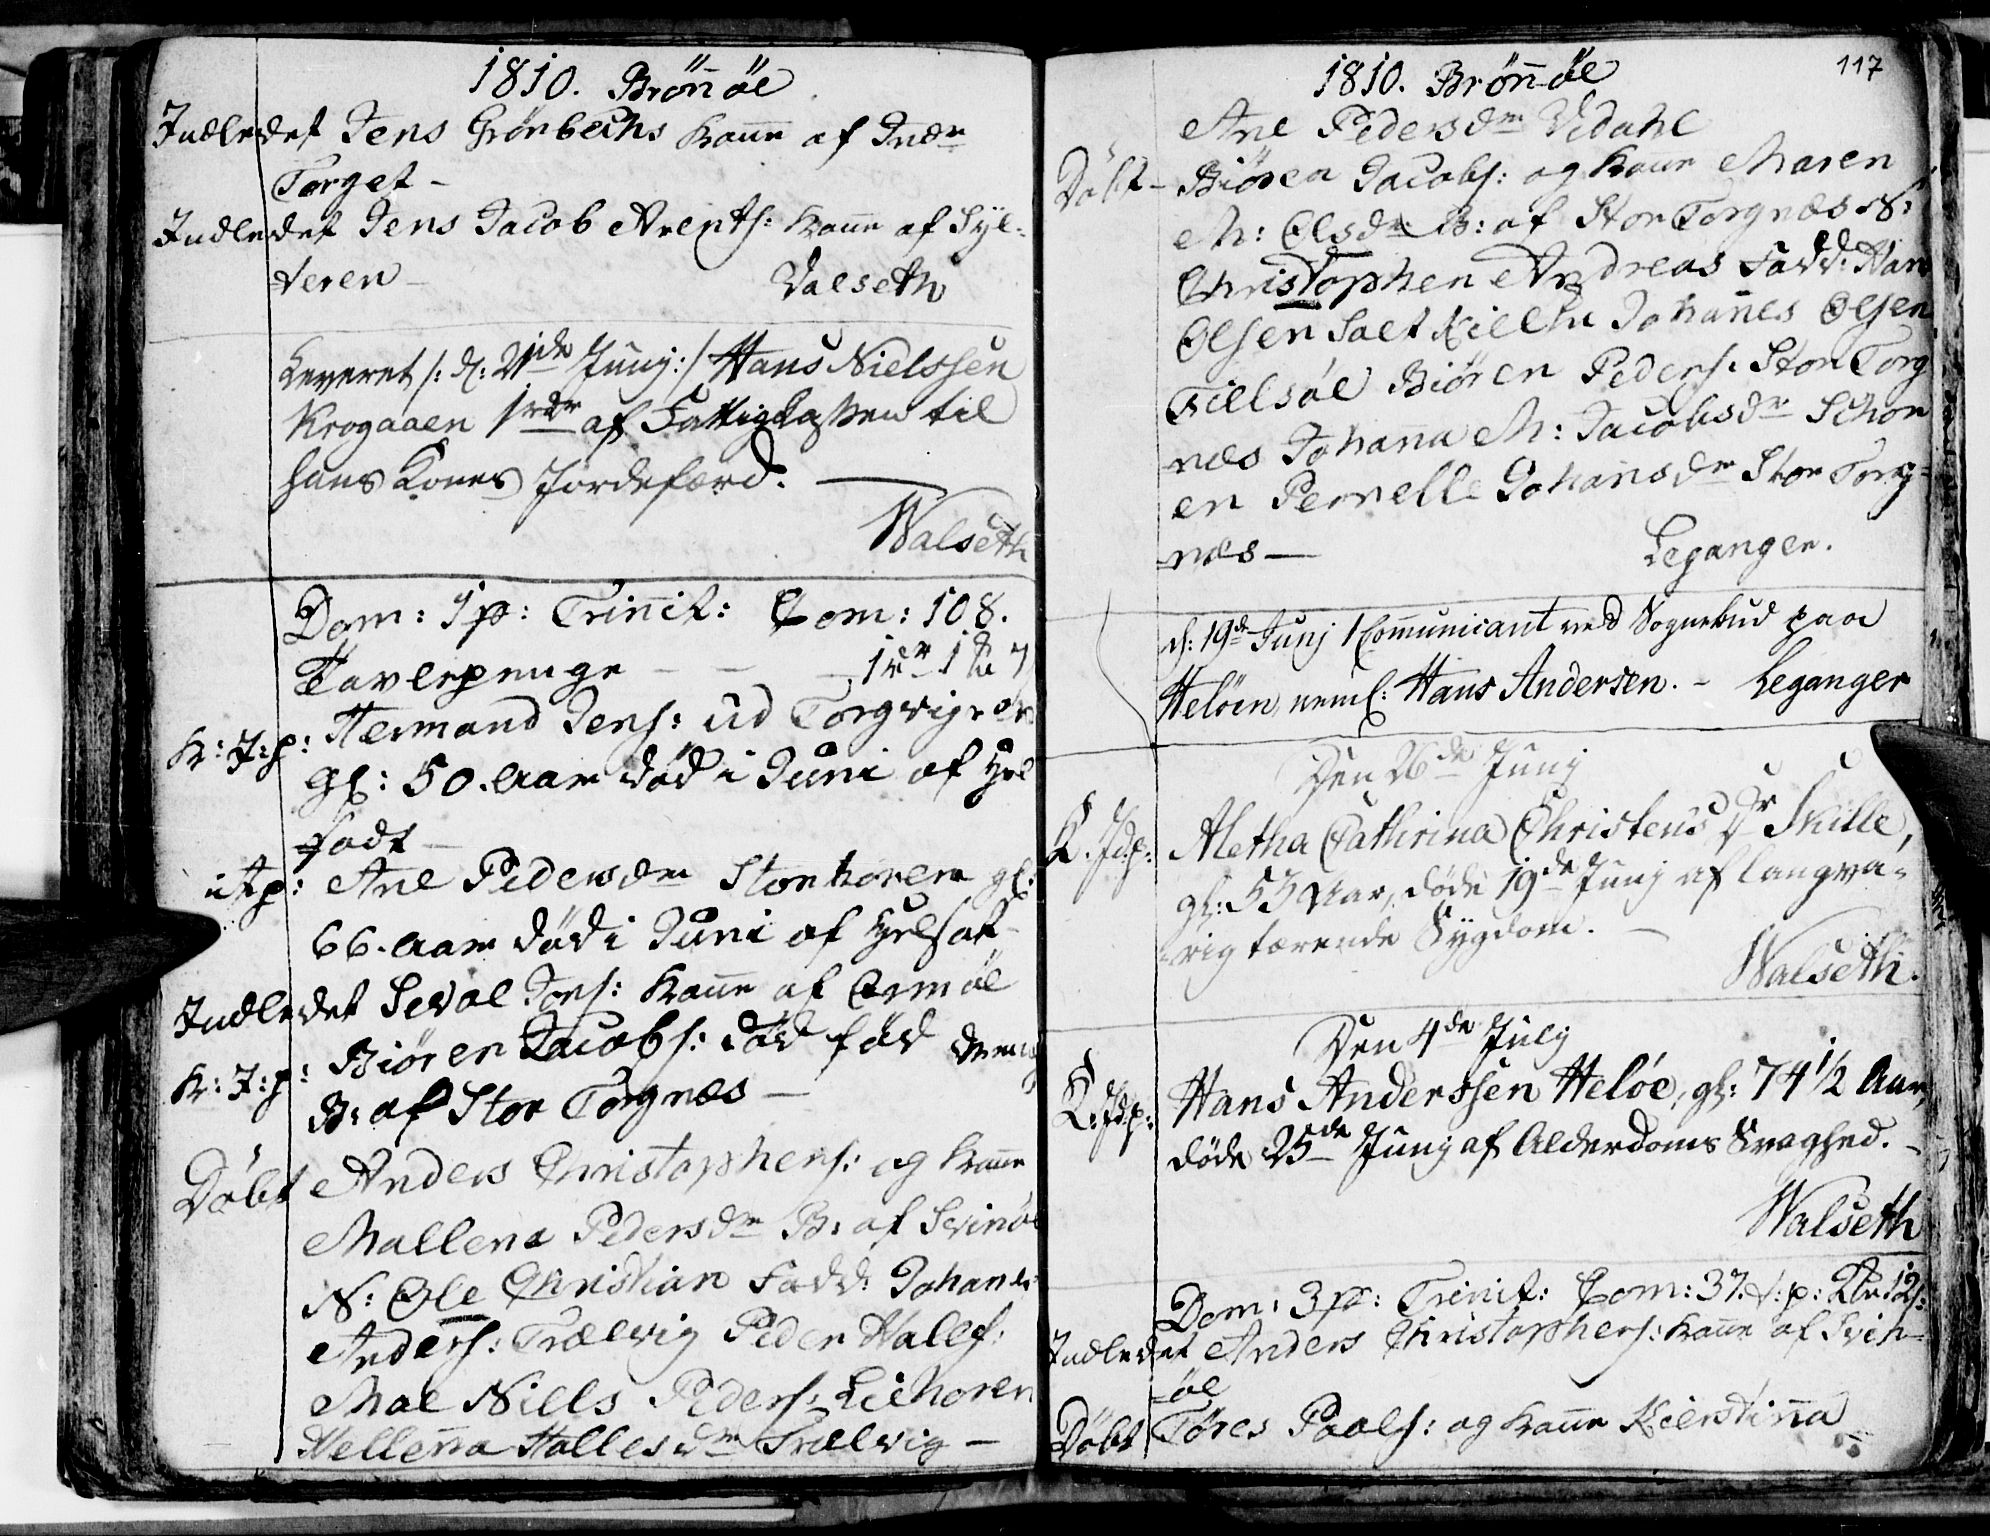 1810. Brönöe
Indledet Jens Grönbechs Kone af Inder
Torget -
Indledet Jens Jacob Arents: Kone af Syl-
teren - Valseth
Leveret /: d: 21de Junj :/ Hans Nielssen
Krogaaen 1rdr af Fattigkassen til
hans Kones Jordefærd. -
Walseth
Dom: 1 p: Trinit: Com: 108.
Tavlepenge - - - 1
K: J: p: Hermand Jens: ud Torgvigen
gl: 50. aar död i Juni af
sodt -
it p: Ane Pedersdr Storhoren gl:
66. aar död i Juni af
Indledet Seval Jons: Kone af Ormöe
K: J: p: Biören Jacobs: död föd dreng
B: af Stor Torgnæs -
Döbt Anders Christophers: og Kone
Mallena Pedersdr B: af Svinöe
N: Ole Christian Fadd: Johanes
Anders: Trælvig Peder Halls:
Moe Nills Peders: Liehoren
Hellena Hallesdr Trælvig -
117
1810. Brönöe
Ane Pedersdr Vedahl
Döbt - Biören Jacobs: og Kone Maren
M: Olsdr B: af Stor Torgnæs N:
Christophen Andreas Fadd: Han
Olsen Johannes Olsen
Tielsöe Biören Peders: Stor Torg
næs Johanna M: Jacobsdr
en Pernelle Johansdr Stor Torg-
næs - Leganger.
d: 19de Junj 1 Communicant ved Sognebud paa
Helöen, neml: Hans Andersen. - Leganger
Den 26de Junj
K. Jdp: Aletha Cathrina Christens Dr Skille,
gl: 53 Aar, döde 19de Junj af langva-
rig tærende Sygdom. -
Walseth.
Den 4de Julj
K: Jdp: Hans Anderssen Helöe, gl: 74 1/2 Aar,
döde 25de Junj af Alderdoms Svaghed. -
Walseth
Dom: 3 p: Trinit: Com: 37. t: p: 12 s:
Indledet Anders Christophers: Kone af Svin-
öe
Döbt Töres Paals: og Kone Kierstinna